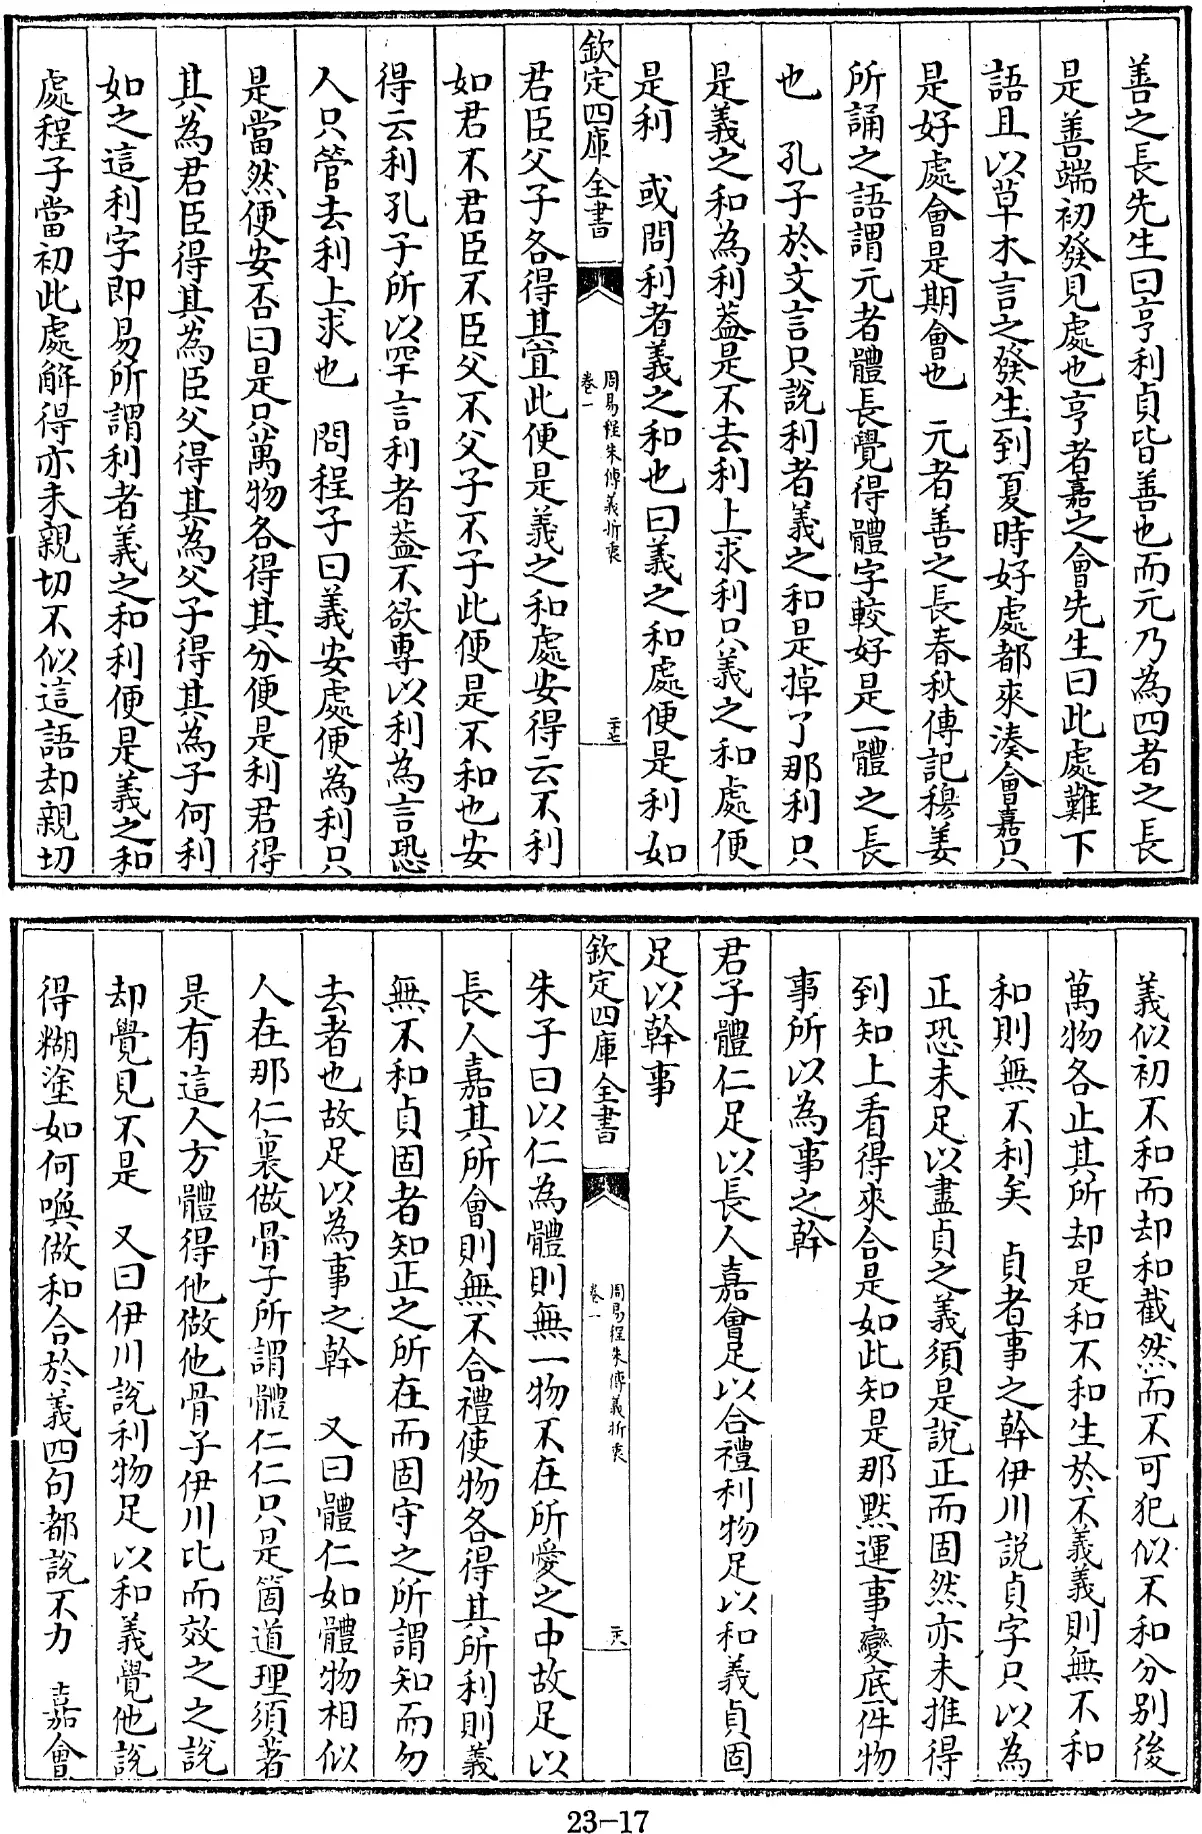 善之長先生曰亨利貞皆善也而元乃為四者之長
是善端初發見處也亨者嘉之會先生曰此處難下
語且以草木言之發生到夏時好處都來湊會嘉只
是好處會是期會也　元者善之長春秋傳記穆姜
所誦之語謂元者體長覺得體字較好是一體之長
也　孔子於文言只說利者義之和是掉了那利只
是義之和為利葢是不去利上求利只義之和處便
是利　或問利者義之和也曰義之和處便是利如
欽定四庫全書
周易程朱傳義折衷
卷一
二十七
君臣父子各得其宜此便是義之和處安得云不利
如君不君臣不臣父不父子不子此便是不和也安
得云利孔子所以罕言利者葢不欲專以利為言恐
人只管去利上求也　問程子曰義安處便為利只
是當然便安否曰是只萬物各得其分便是利君得
其為君臣得其為臣父得其為父子得其為子何利
如之這利字即易所謂利者義之和利便是義之和
處程子當初此處解得亦未親切不似這語却親切
義似初不和而却和截然而不可犯似不和分別後
萬物各止其所却是和不和生於不義義則無不和
和則無不利矣　貞者事之幹伊川說貞字只以為
正恐未足以盡貞之義須是說正而固然亦未推得
到知上看得來合是如此知是那黙運事變底一件物
事所以為事之幹
君子體仁足以長人嘉會足以合禮利物足以和義貞固
足以幹事
欽定四庫全書
周易程朱傳義折衷
卷一
二十八
朱子曰以仁為體則無一物不在所愛之中故足以
長人嘉其所會則無不合禮使物各得其所利則義
無不和貞固者知正之所在而固守之所謂知而勿
去者也故足以為事之幹　又曰體仁如體物相似
人在那仁裏做骨子所謂體仁仁只是箇道理須著
是有這人方體得他做他骨子伊川比而效之之說
却覺見不是　又曰伊川說利物足以和義覺他說
得糊塗如何喚做和合於義四句都說不力　嘉會
23-17